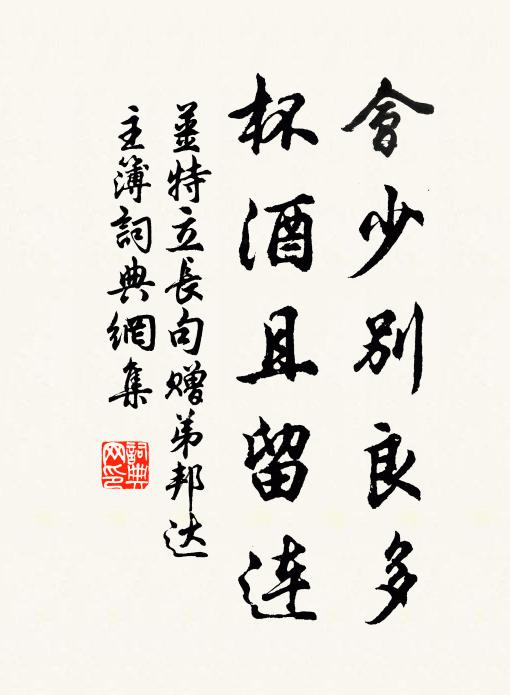 會少別良多
杯酒且留连
姜特立長句赠弟邦达
主簿詞典網集
詞典
网印